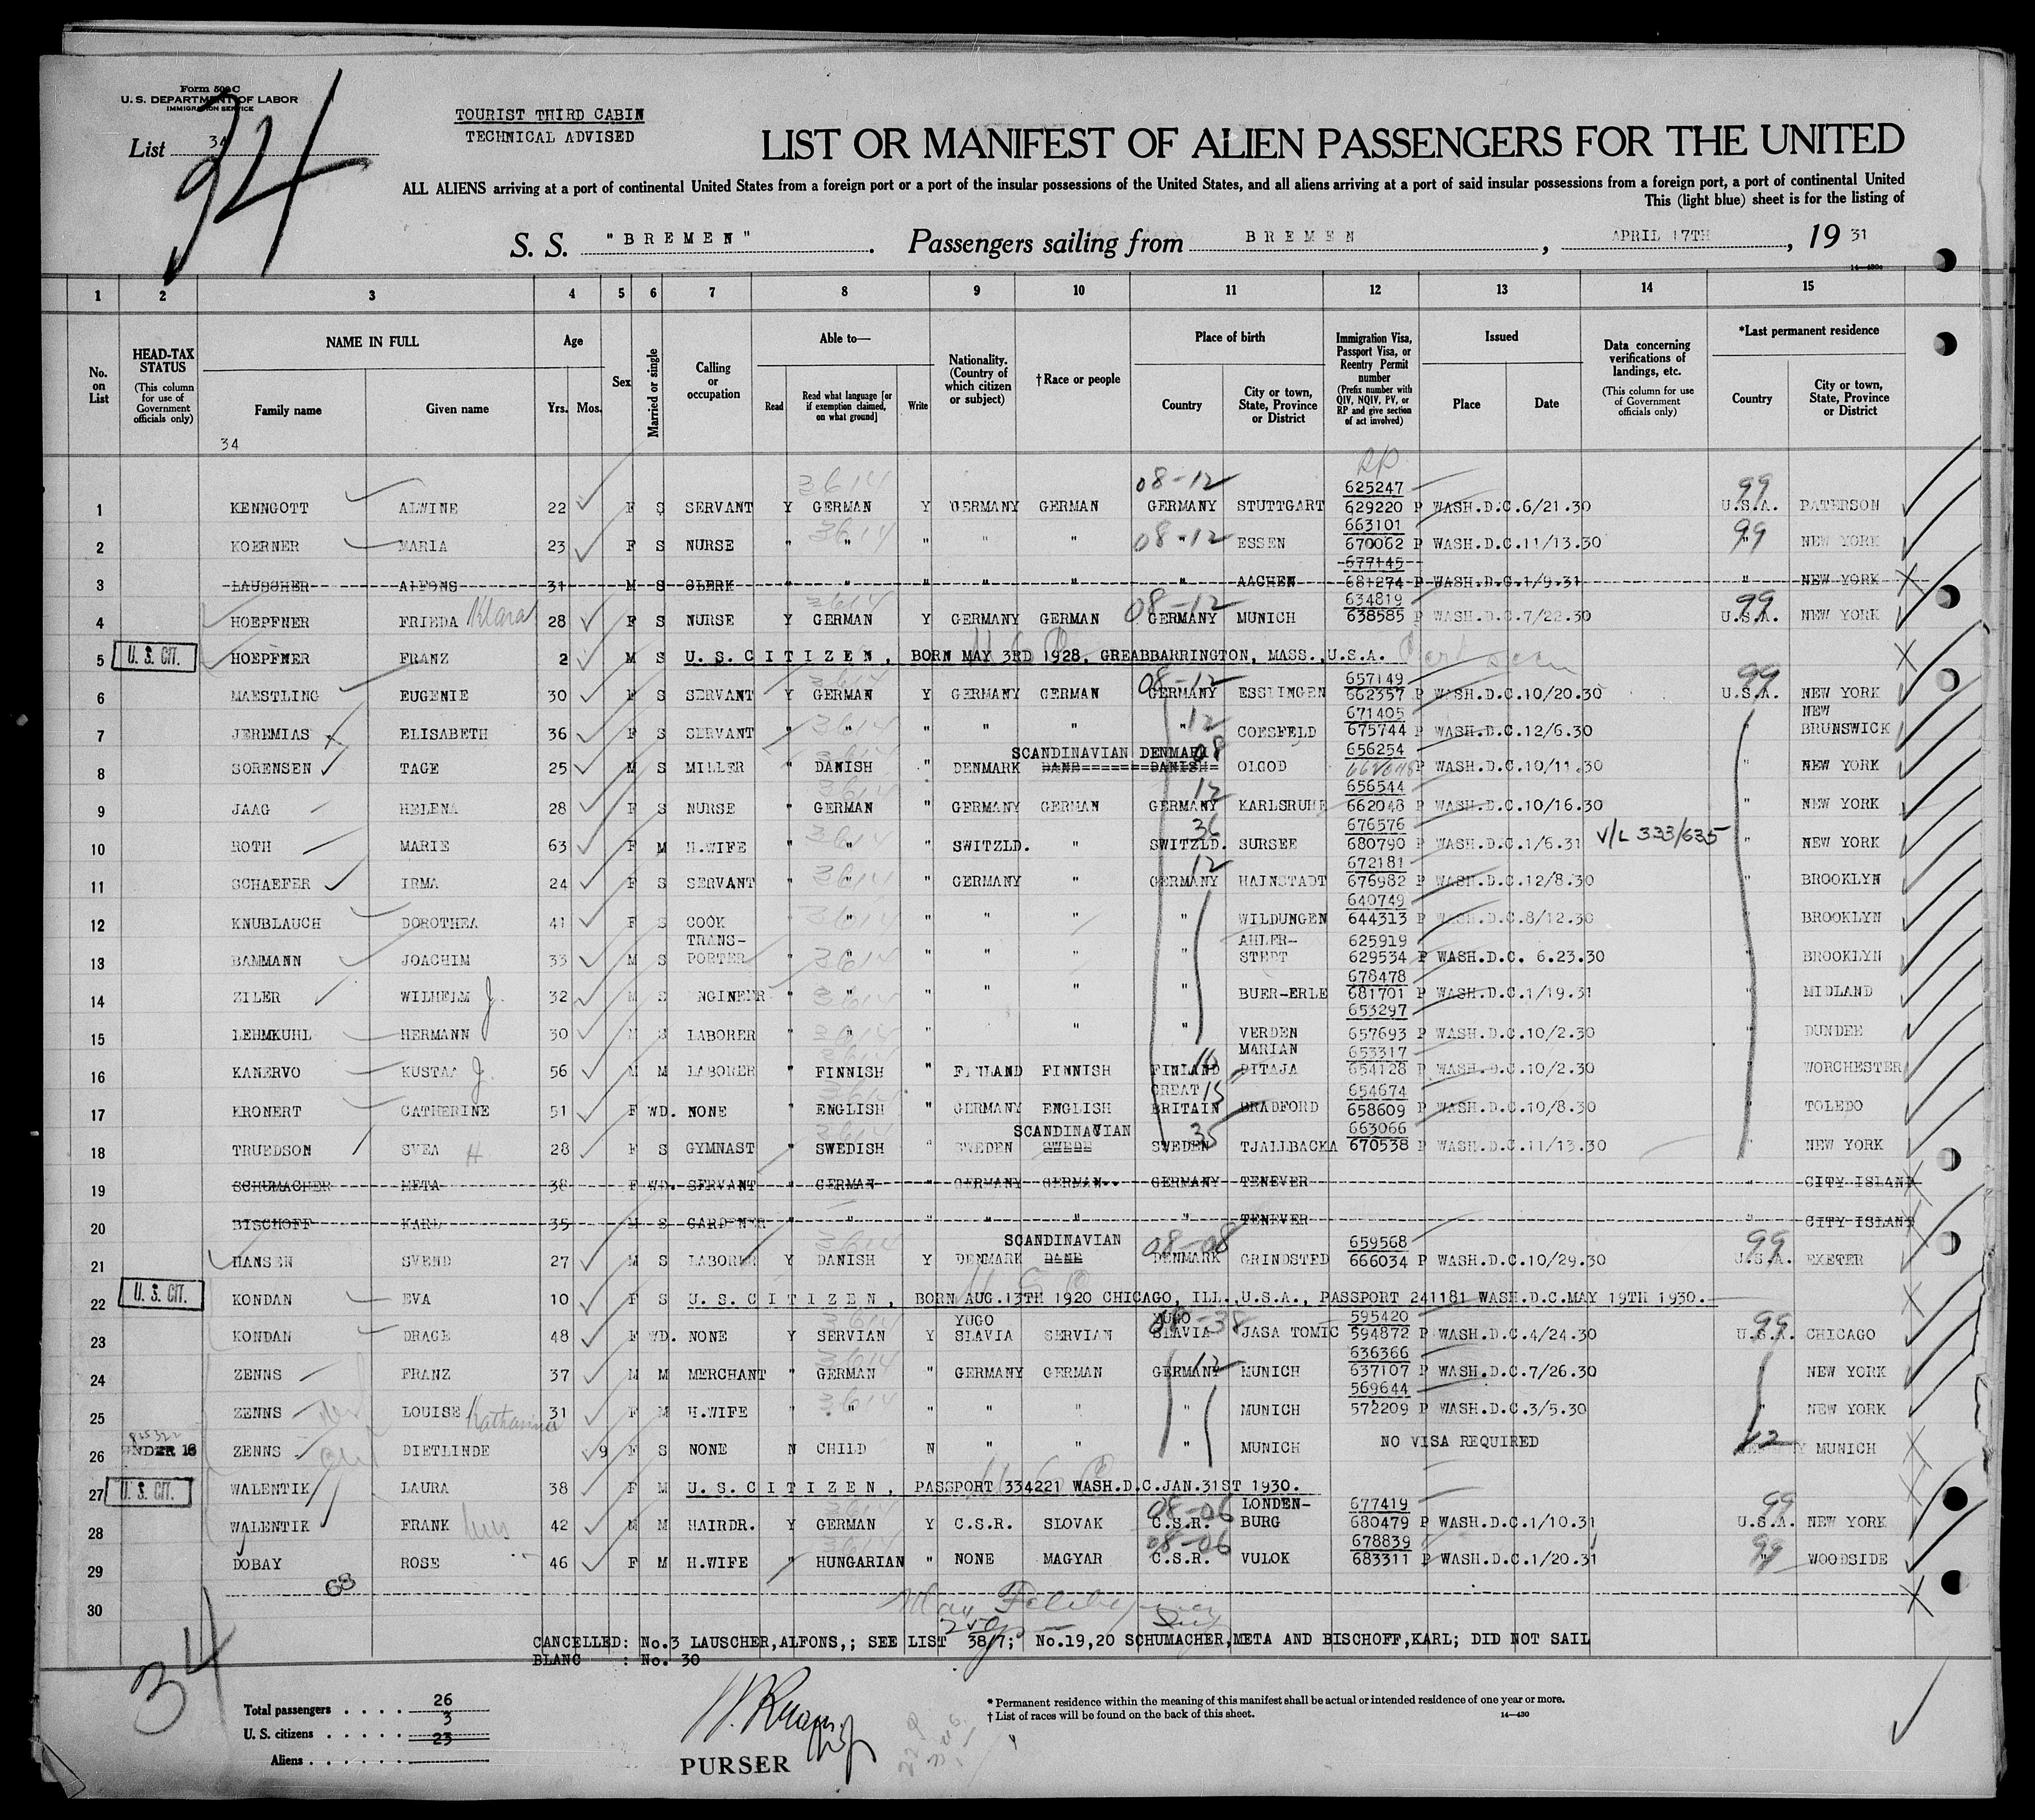 Form 500 C
U. S. DEPARTMENT OF LABOR
IMMIGRATION SERVICE
List 34
34
TOURIST THIRD CABIN
TECHNICAL ADVISED
LIST OR MANIFEST OF ALIEN PASSENGERS FOR THE UNITED
ALL ALIENS arriving at a port of continental United States from a foreign port or a port of the insular possessions of the United States, and all aliens arriving at a port of said insular possessions from a foreign port, a port of continental United
This (light blue) sheet is for the listing of
S. S. "BREMEN". Passengers sailing from BREMEN, APRIL 17TH, 19 31
1 2 3 4 5 6 7 8 9 10 11 12 13 14 15
No. on List
HEAD-TAX STATUS (This column for use of Government officials only)
NAME IN FULL Family name Given name
Age Yrs. Mos.
Sex
Married or single
Calling or occupation
Able to— Read Read what language [or if exemption claimed, on what ground] Write
Nationality. (Country of which citizen or subject)
†Race or people
Place of birth Country City or town, State, Province or District
Immigration Visa, Passport Visa, or Reentry Permit number (Prefix number with QIV, NQIV, PV, or RP and give section of act involved)
Issued Place Date
Data concerning verifications of landings, etc. (This column for use of Government officials only)
*Last permanent residence Country City or town, State, Province or District
34
RP
3614 08-12 625247 99
1 KENNGOTT ALWINE 22 F S SERVANT Y GERMAN Y GERMANY GERMAN GERMANY STUTTGART 629220 P WASH.D.C.6/21.30 U.S.A. PATERSON
3614 08-12 663101 99
2 KOERNER MARIA 23 F S NURSE " " " " " " ESSEN 670062 P WASH.D.C.11/13.30 " NEW YORK
677145
3 LAUSCHER ALFONS 31 M S CLERK " " " " " " AACHEN 681274 P WASH.D.C.1/9.31 " NEW YORK
3614 08-12 634819 99
4 HOEPFNER FRIEDA Klara 28 F S NURSE Y GERMAN Y GERMANY GERMAN GERMANY MUNICH 638585 P WASH.D.C.7/22.30 U.S.A. NEW YORK
5 U. S. CIT. HOEPFNER FRANZ 2 M S U. S. CITIZEN, BORN MAY 3RD 1928, GREABBARRINGTON, MASS.,U.S.A.
3614 08-12 657149 99
6 MAESTLING EUGENIE 30 F S SERVANT Y GERMAN Y GERMANY GERMAN GERMANY ESSLINGEN 662357 P WASH.D.C.10/20.30 U.S.A. NEW YORK
3614 12 671405 NEW
7 JEREMIAS ELISABETH 36 F S SERVANT " " " " " " COESFELD 675744 P WASH.D.C.12/6.30 " BRUNSWICK
3614 SCANDINAVIAN DENMARK 08 656254
8 SORENSEN TAGE 25 M S MILLER " DANISH " DENMARK DANE DANISH OLGOD P WASH.D.C.10/11.30 " NEW YORK
3614 12 656544
9 JAAG HELENA 28 F S NURSE " GERMAN " GERMANY GERMAN GERMANY KARLSRUHE 662048 P WASH.D.C.10/16.30 " NEW YORK
3614 36 676576
10 ROTH MARIE 63 F M H.WIFE " " " SWITZLD. " SWITZLD. SURSEE 680790 P WASH.D.C.1/6.31 V/L 333/635 " NEW YORK
3614 12 672181
11 SCHAEFER IRMA 24 F S SERVANT " " " GERMANY " GERMANY HAINSTADT 676982 P WASH.D.C.12/8.30 BROOKLYN
3614 640749
12 KNUBLAUCH DOROTHEA 41 F S COOK " " " " " WILDUNGEN 644313 P WASH.D.C.8/12.30 " BROOKLYN
TRANS- AHLER- 625919
13 BAMMANN JOACHIM 33 M S PORTER " " " " " " STEDT 629534 P WASH.D.C. 6.23.30 " BROOKLYN
3614 678478
14 ZILER WILHELM J. 32 M S ENGINEER " " " " " " BUER-ERLE 681701 P WASH.D.C.1/19.31 " MIDLAND
3614 653297
15 LEHMKUHL HERMANN 30 M S LABORER " " " " " VERDEN 657693 P WASH.D.C.10/2.30 " DUNDEE
3614 10 MARIAN 653317
16 KANERVO KUSTAA J. 56 M M LABORER " FINNISH " FINLAND FINNISH FINLAND PITAJA 654128 P WASH.D.C.10/2.30 WORCHESTER
GREAT 15 654674
17 KRONERT CATHERINE 51 F WD. NONE " ENGLISH " GERMANY ENGLISH BRITAIN BRADFORD 658609 P WASH.D.C.10/8.30 " TOLEDO
3614 SCANDINAVIAN 35 663066
18 TRUEDSON SVEA H 28 F S GYMNAST " SWEDISH " SWEDEN SWEDE SWEDEN TJALLBACKA 670538 P WASH.D.C.11/13.30 " NEW YORK
19 SCHUMACHER META 38 F WD. SERVANT " GERMAN " GERMANY GERMAN GERMANY TENEVER " CITY ISLAND
20 BISCHOFF KARL 35 M S GARDENER " " " " " " TENEVER " CITY ISLAND
3614 SCANDINAVIAN 08-08 659568 99
21 HANSEN SVEND 27 M S LABORER Y DANISH Y DENMARK DANE DENMARK GRINDSTED 666034 P WASH.D.C.10/29.30 U.S.A. EXETER
22 U. S. CIT. KONDAN EVA 10 F S U. S. CITIZEN, BORN AUG.13TH 1920 CHICAGO, ILL. U.S.A., PASSPORT 241181 WASH.D.C.MAY 19TH 1930.
3614 YUGO YUGO 08-38 595420 99
23 KONDAN DRAGE 48 F WD. NONE Y SERVIAN Y SLAVIA SERVIAN SLAVIA JASA TOMIC 594872 P WASH.D.C.4/24.30 U.S.A. CHICAGO
3614 12 636366
24 ZENNS FRANZ 37 M M MERCHANT " GERMAN " GERMANY GERMAN GERMANY MUNICH 637107 P WASH.D.C.7/26.30 " NEW YORK
3614 569644
25 ZENNS LOUISE Katharina 31 F M H.WIFE " " " " " " MUNICH 572209 P WASH.D.C.3/5.30 " NEW YORK
26 UNDER 16 ZENNS DIETLINDE 9 F S NONE N CHILD N " " " MUNICH NO VISA REQUIRED 12 MUNICH
27 U. S. CIT. WALENTIK LAURA 38 F M U. S. CITIZEN, PASSPORT 334221 WASH.D.C.JAN.31ST 1930.
3614 08-06 LONDEN- 677419 99
28 WALENTIK FRANK 42 M M HAIRDR. Y GERMAN Y C.S.R. SLOVAK C.S.R. BURG 680479 P WASH.D.C.1/10.31 U.S.A. NEW YORK
3614 08-06 678839
29 DOBAY ROSE 46 F M H.WIFE " HUNGARIAN " NONE MAGYAR C.S.R. VULOK 683311 P WASH.D.C.1/20.31 99 WOODSIDE
68
30
CANCELLED: No.3 LAUSCHER,ALFONS,; SEE LIST 38/7; No.19,20 SCHUMACHER,META AND BISCHOFF,KARL; DID NOT SAIL
BLANC : No. 30
34
Total passengers 26
U. S. citizens 3
Aliens 23
PURSER
* Permanent residence within the meaning of this manifest shall be actual or intended residence of one year or more.
† List of races will be found on the back of this sheet.
14—430